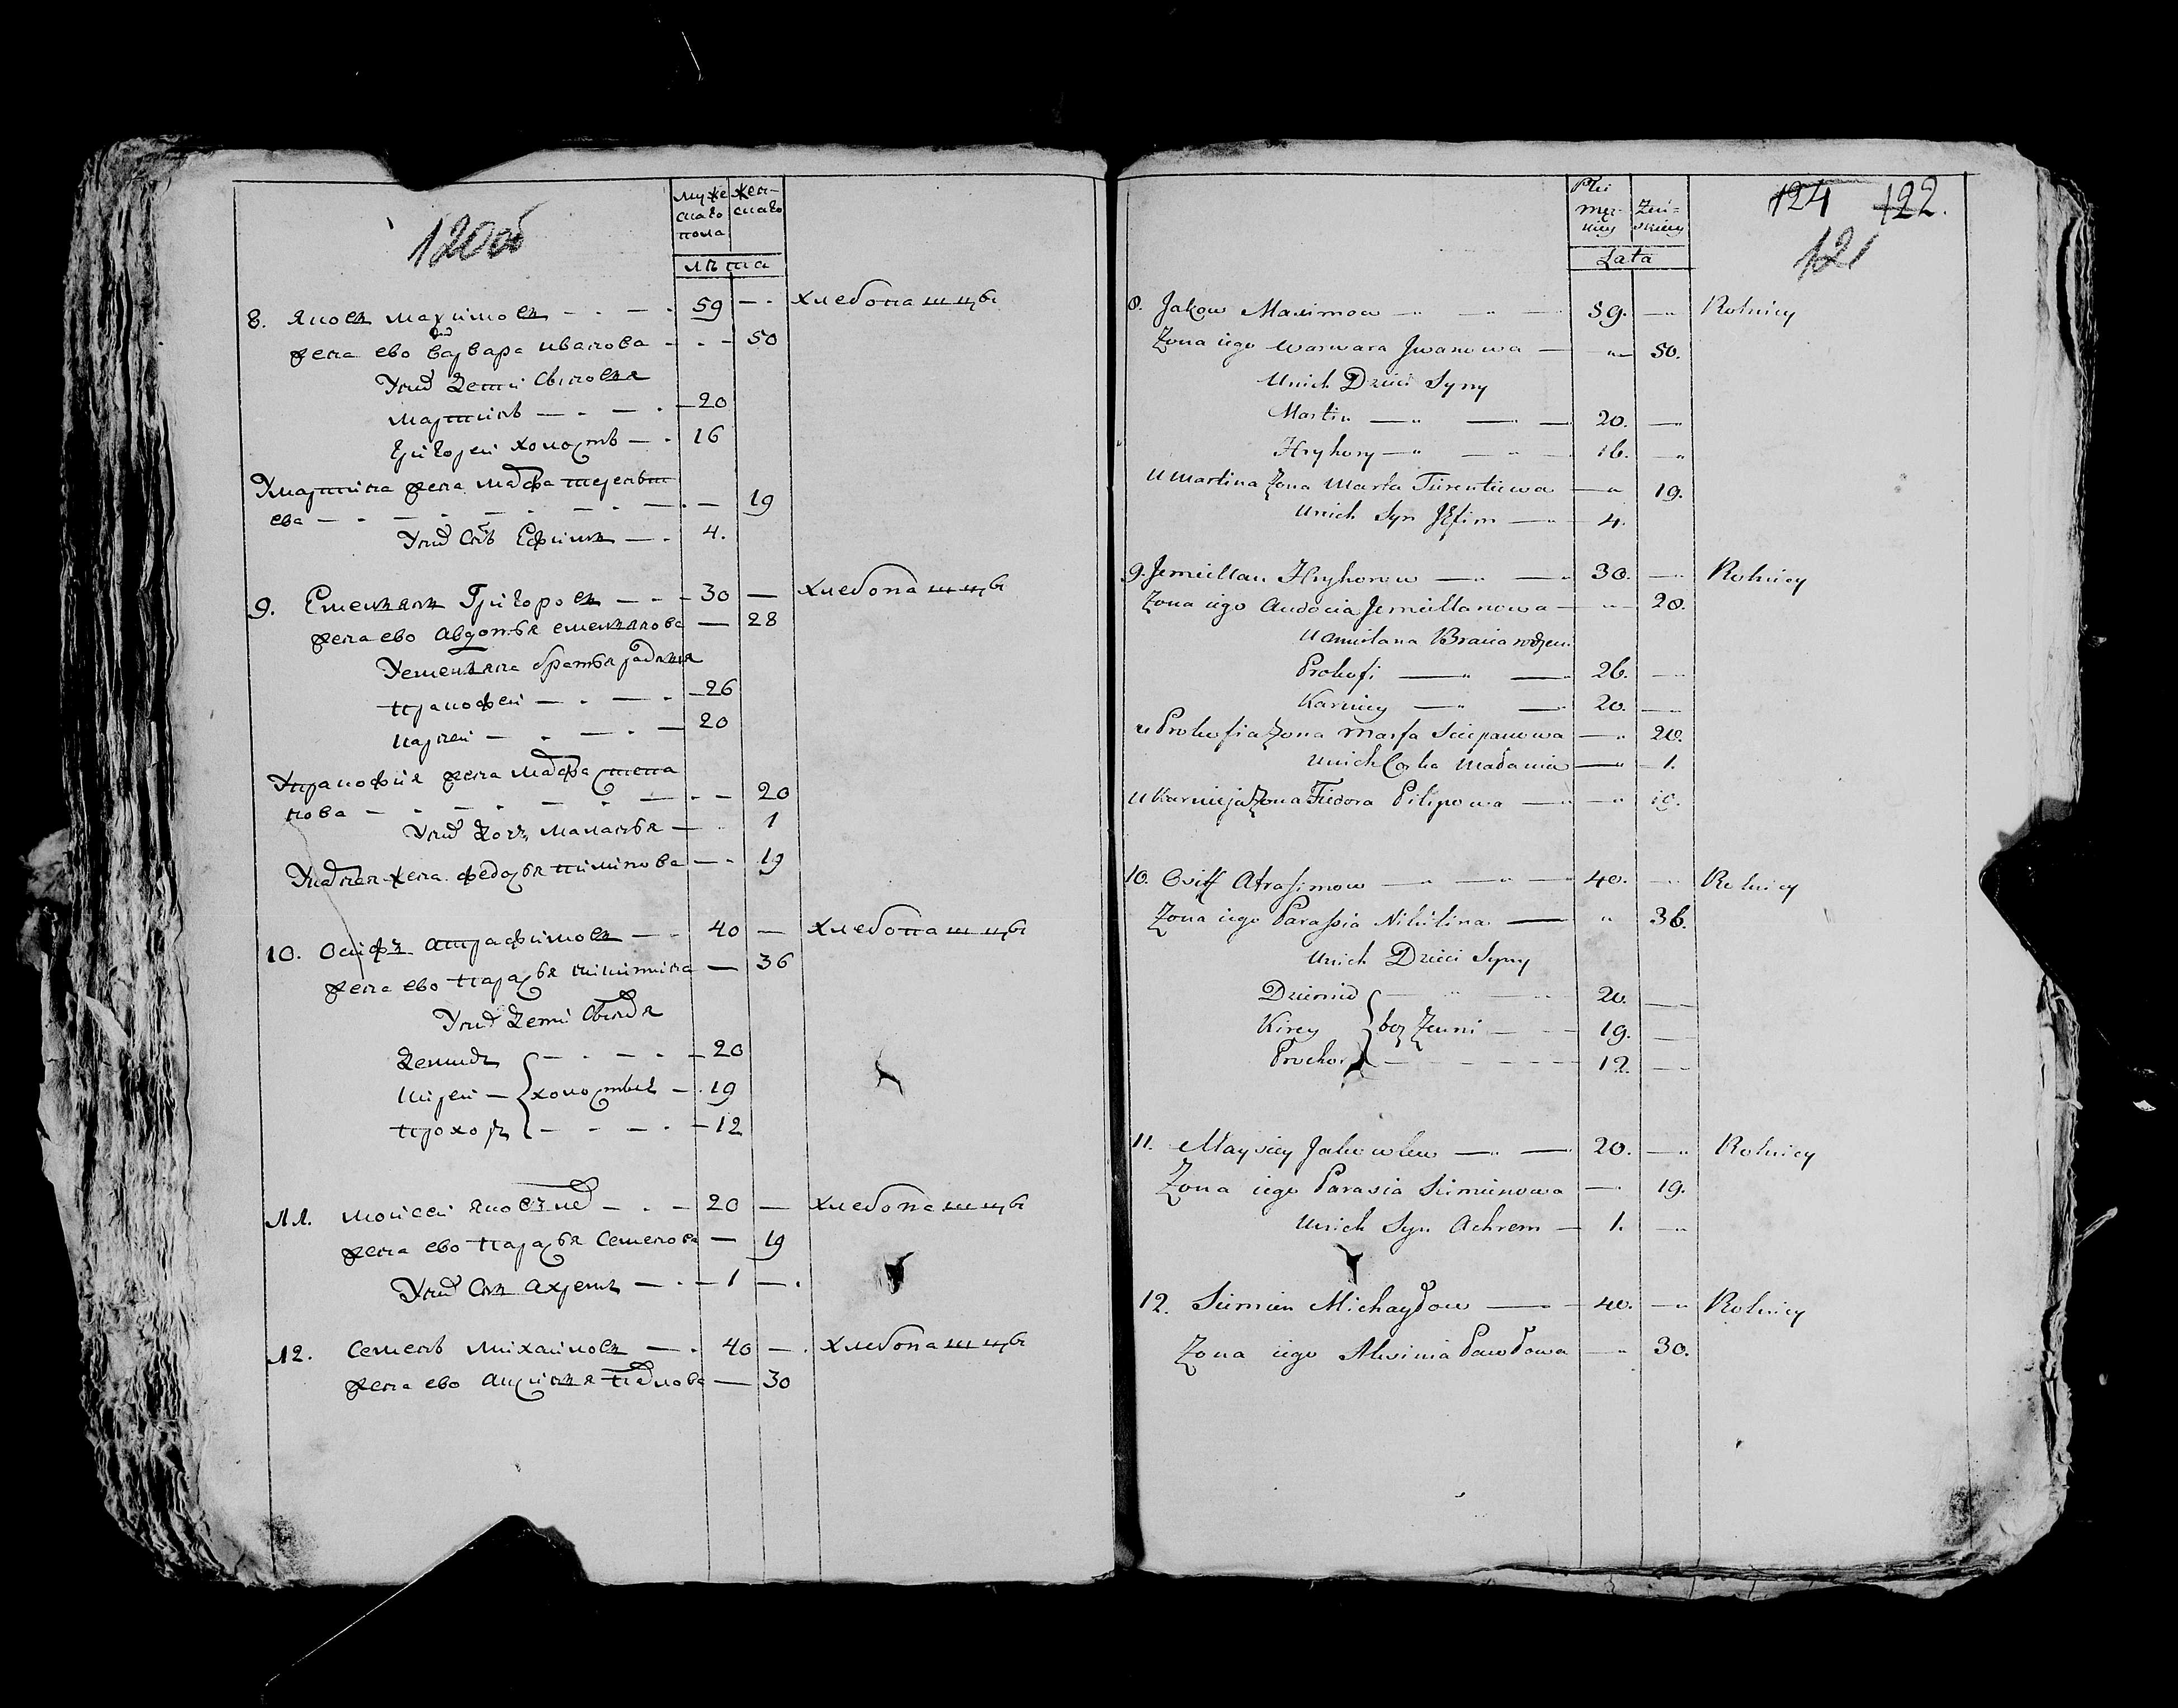 120об
муже
скаго
пола
жен-
скаго
лѣта
8. Яковъ Максимовъ 59 хлебопашцы
жена ево Варвара Иванова 50
У них дети сыновья
Мартинъ 20
Григорей холостъ 16
У Мартина жена Марфа Терентьева 19
У них сынъ Ефимъ 4.
9. Емельянъ Григоровъ 30 хлебопашцы
жена ево Авдотья Емельянова 28
У Емельяна братья родныя
Пракофей 26
Карней 20
У Пракофия жена Марфа Степанова 20
У них дочь Маланья 1
жена Федосья Пилипова 19
10. Осифъ Атрафимовъ 40 хлебопашцы
жена ево Парасья Никитина 36
У них дети сыновья
Демидъ 20
Кирей холостые 19
Прохоръ 12
11. Мойсей Яковлев 20 хлебопашцы
жена ево Парасья Семенова 19
У них сынъ Ахремъ 1
12. Семенъ Михайловъ 40 хлебопашцы
жена ево Аксинья Павлова 30
Płci
męz-
kiey
Żeń-
skiey
Lata
124 122.
121
8. Jakow Maximow 59. Rolnicy
Zona iego Warwara Jwanowa 50.
Unich Dzieci Syny
Martin 20.
Hryhory 16.
U Martina Zona Marta Tierentiewa 19.
Unich Syn Jefim 4.
9. Jemiellan Hryhorow 30. Rolnicy
Zona iego Audocia Jemiellanowa 28.
U Amielana Bracia rodzeni
Prokofi 26.
Karniey 20.
u Prokofia Zona Marfa Sciepanowa 20.
Unich Corka Madania 1.
U Karnieja Zona Fiedora Pilipowa 19.
10. Osiff Atrafimow 40. Rolnicy
Zona iego Parassia Nikitina 36.
Unich Dzieci Syny
Dziemid 20.
Kirey bez Zenni 19.
Prochor 12.
11. Maysiey Jakowlew 20. Rolnicy
Zona iego Parasia Siemienowa 19.
Unich Syn Achrem 1.
12. Siemien Michayłow 40. Rolnicy
Zona iego Alxinia Pawłowa 30.